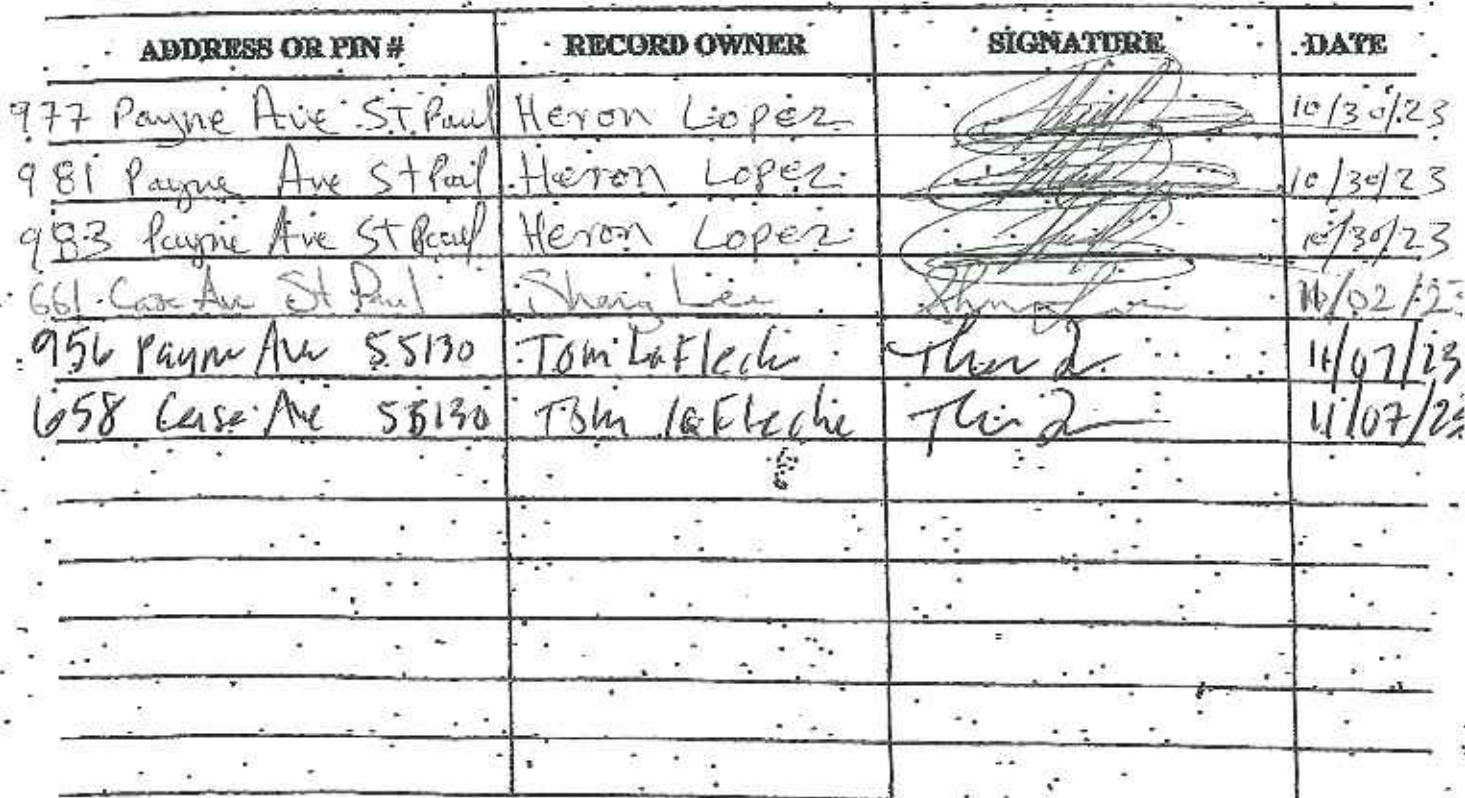 ADDRESS OR PIN # RECORD OWNER SIGNATURE DATE
977 Payne Ave St Paul Heron Lopez 10/30/23
981 Payne Ave St Paul Heron Lopez 10/30/23
983 Payne Ave St Paul Heron Lopez 10/30/23
661 Case Ave St Paul 11/02/2
956 Payne Ave 55130 Tom LaFleche 11/07/23
658 Case Ave 55130 Tom laFleche 11/07/23